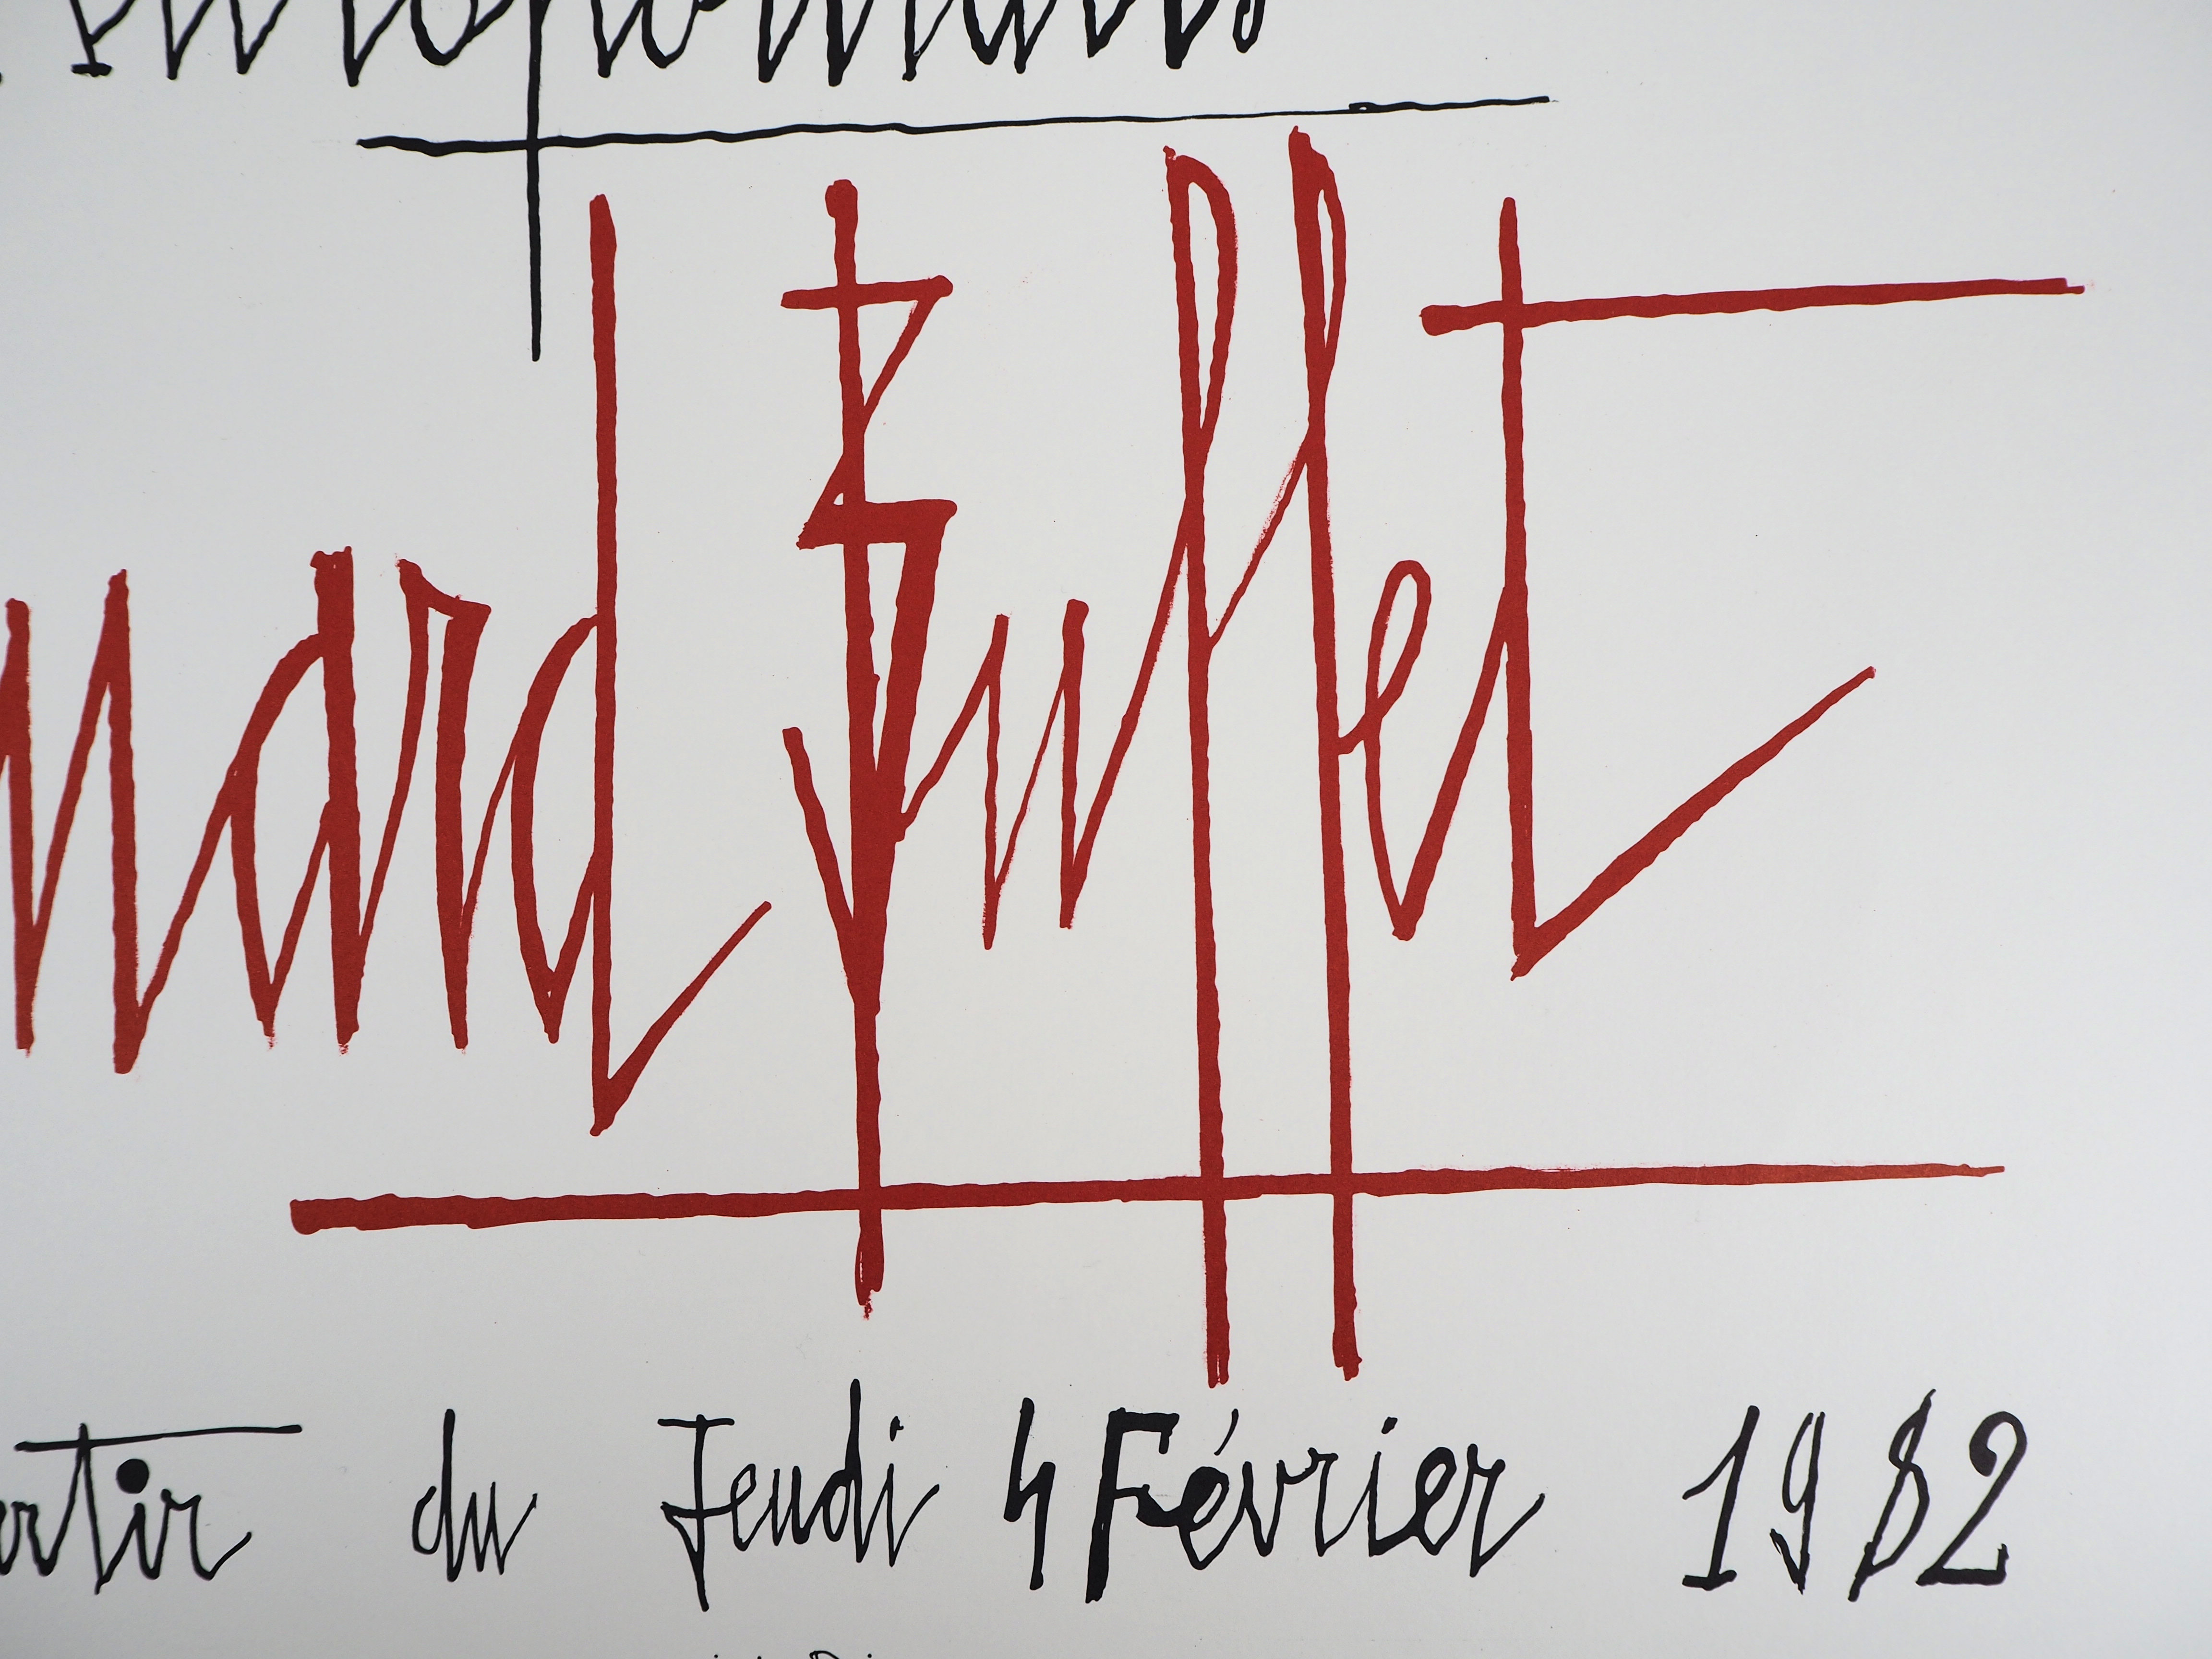 nard Buffet
artir du Jeudi 4 Février 1982